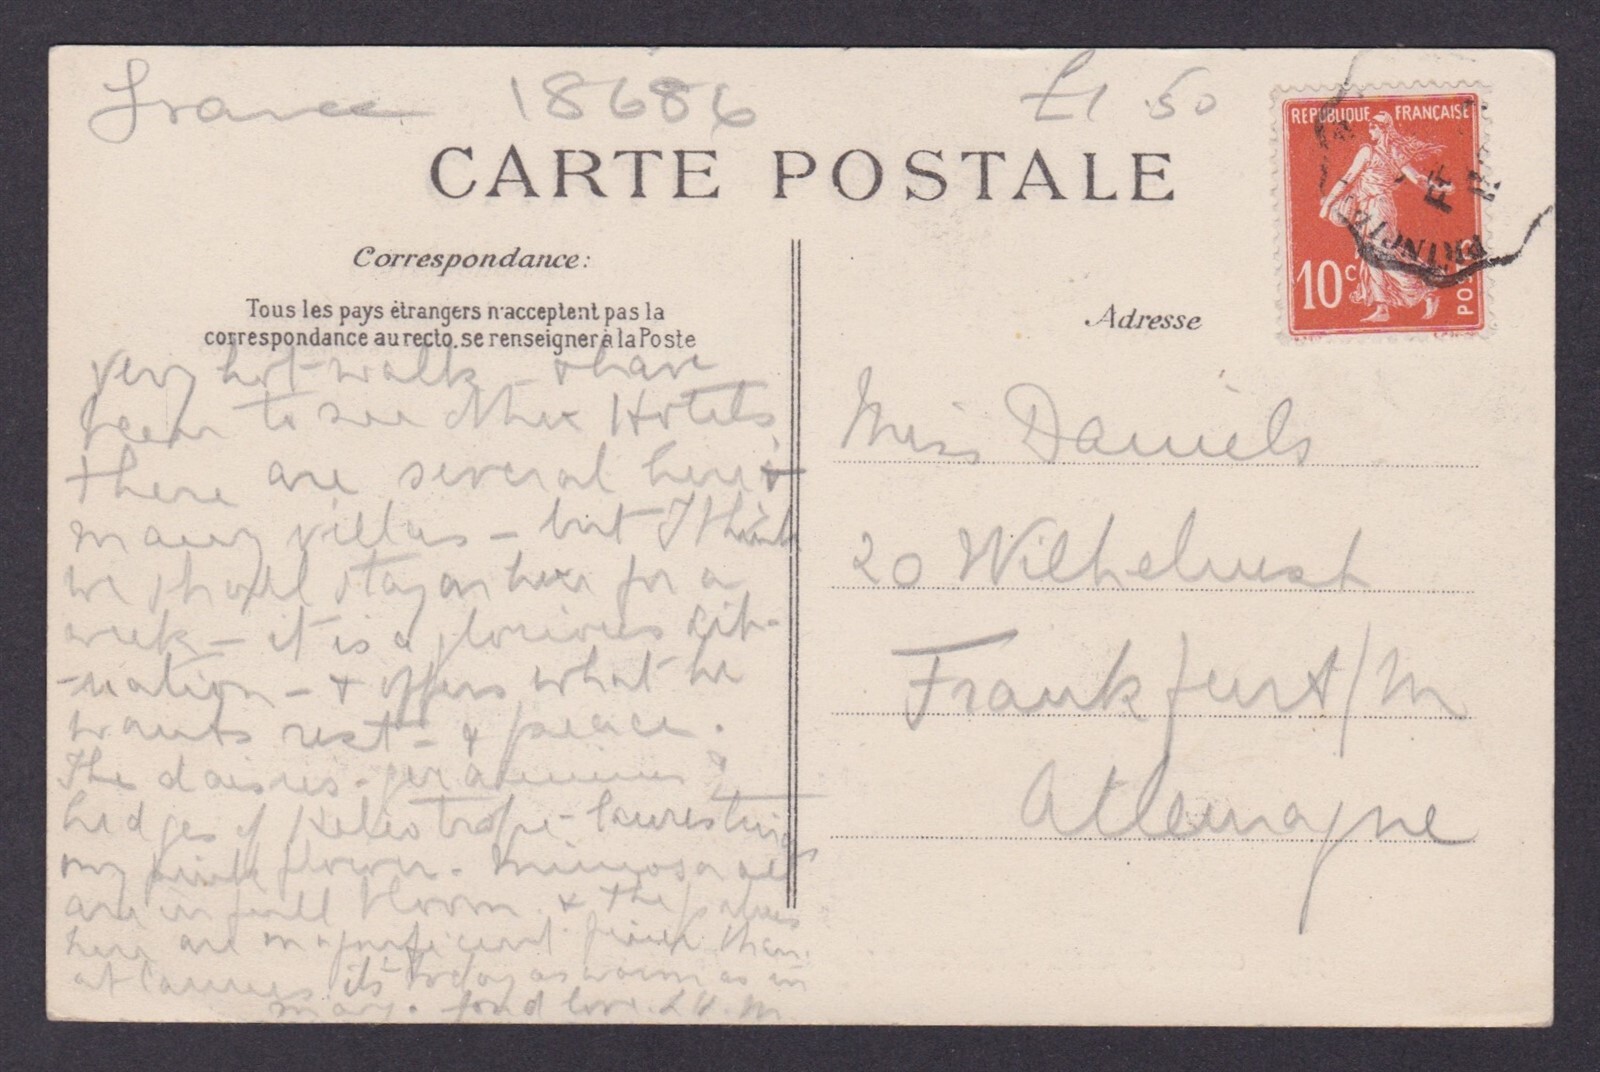 France 18686 £1.50
CARTE POSTALE
RÉPUBLIQUE FRANÇAISE
10c
POSTES
Correspondance:
Tous les pays étrangers n'acceptent pas la
correspondance au recto, se renseigner à la Poste
very hot walk - & have
been to see other Hotels,
there are several here &
many villas - but I think
we shall stay on here for a
week - it is a glorious sit-
-uation - & offers what we
wants rest - & peace.
The daisies - geraniums &
hedges of heliotrope - laurestinus
my pink flower - mimosa all
are in full bloom & the palms
here are magnificent finer than
at Cannes its today as warm as in
may. fond love. L H. M
Adresse
Miss Daniels
20
Frankfurt/M
Allemagne